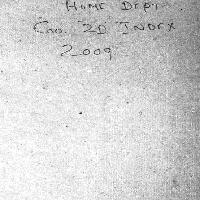 HOME DEPT.
CAO. 2D INDEX
2009